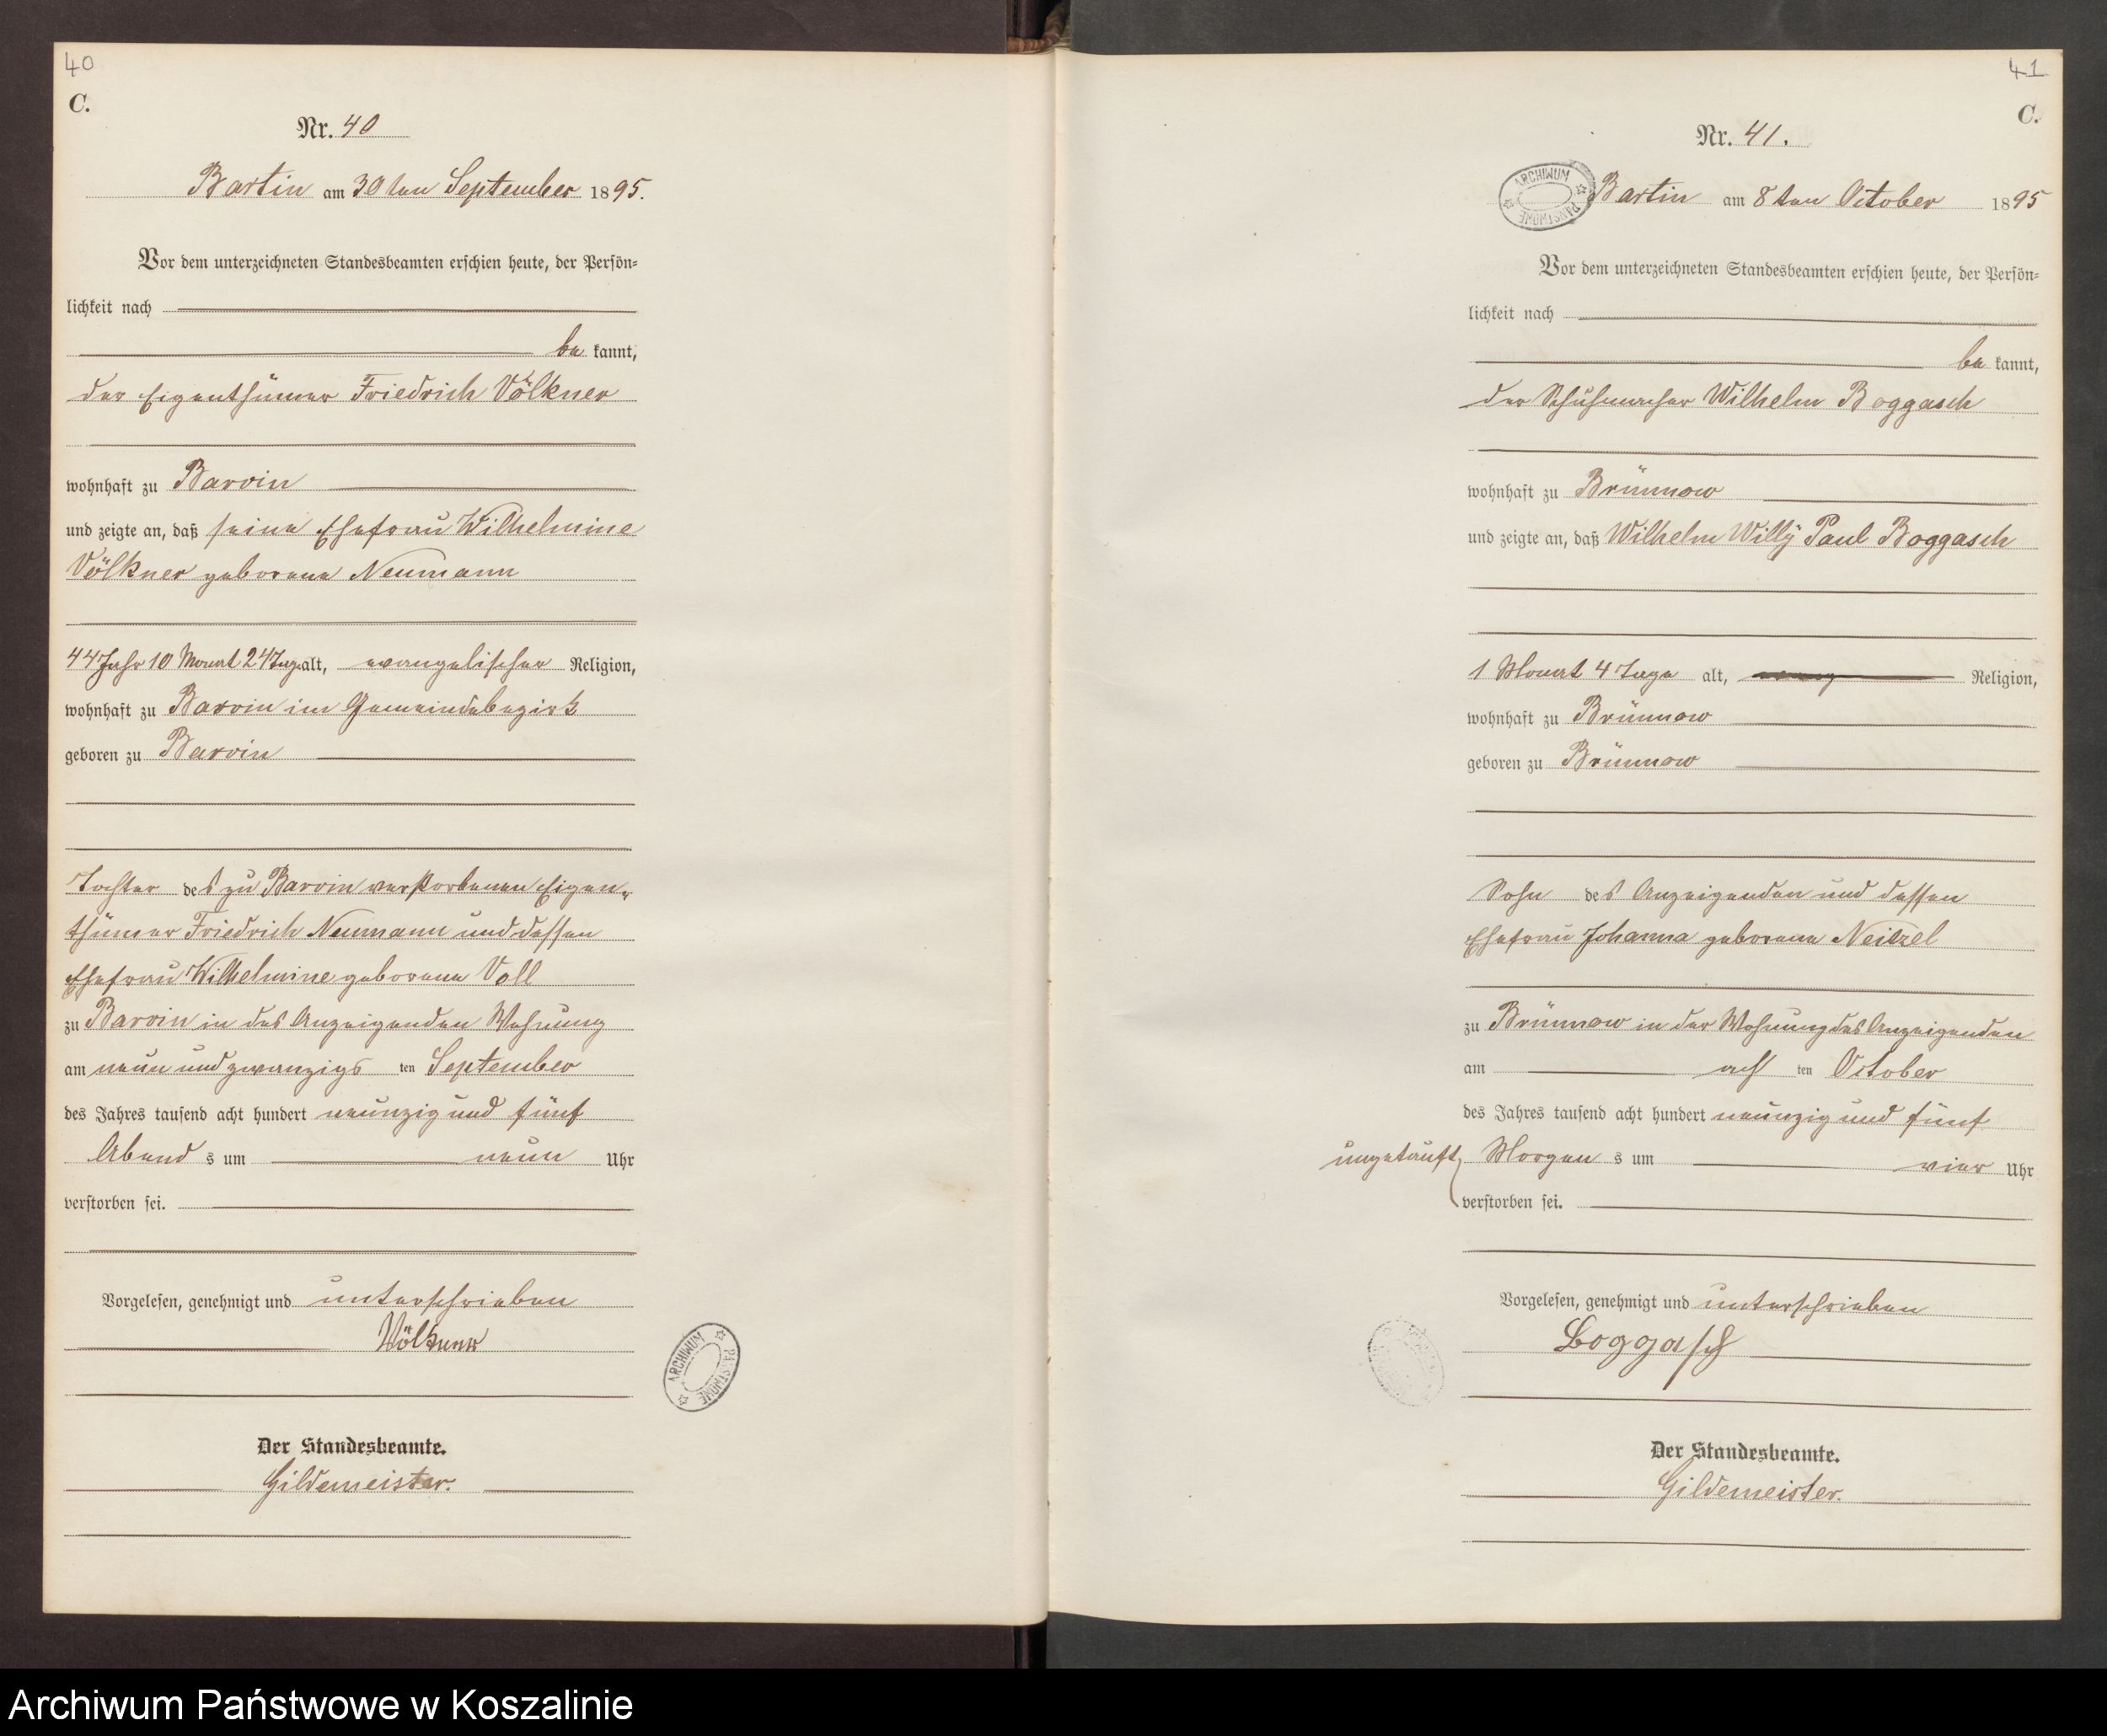 40
C.
Nr. 40
Bartin am 30ten September 1895.
Vor dem unterzeichneten Standesbeamten erschien heute, der Persön=
lichkeit nach
be kannt,
der Eigenthümer Friedrich Völkner
wohnhaft zu Barvin
und zeigte an, daß seine Ehefrau Wilhelmine
Völkner geborene Neumann
44 Jahr 10 Monat 24 Tage alt, evangelischer Religion,
wohnhaft zu Barvin im Gemeindebezirk
geboren zu Barvin
Tochter des zu Barvin verstorbenen Eigen=
thümer Friedrich Neumann und dessen
Ehefrau Wilhelmine geborene Voll
zu Barvin in des Anzeigenden Wohnung
am neun und zwanzigs ten September
des Jahres tausend acht hundert neunzig und fünf
Abend s um neun Uhr
verstorben sei.
Vorgelesen, genehmigt und unterschrieben
Völkner
ARCHIWUM PAŃSTWOWE
Der Standesbeamte.
Gildemeister.
41
C.
Nr. 41.
ARCHIWUM PAŃSTWOWE
Bartin am 8ten October 1895
Vor dem unterzeichneten Standesbeamten erschien heute, der Persön=
lichkeit nach
be kannt,
der Schuhmacher Wilhelm Boggasch
wohnhaft zu Brünnow
und zeigte an, daß Wilhelm Willy Paul Boggasch
1 Monat 4 Tage alt, Religion,
wohnhaft zu Brünnow
geboren zu Brünnow
Sohn des Anzeigenden und dessen
Ehefrau Johanna geborene Neitzel
zu Brünnow in der Wohnung des Anzeigenden
am ach ten October
des Jahres tausend acht hundert neunzig und fünf
ungetauft, Morgen s um vier Uhr
verstorben sei.
Vorgelesen, genehmigt und unterschrieben
Boggasch
Der Standesbeamte.
Gildemeister.
Archiwum Państwowe w Koszalinie